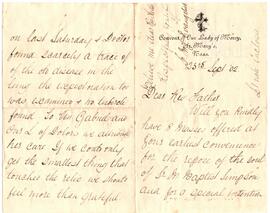 Convent of Our Lady of Mercy,
St. Mary's,
Naas.
25th Sept 02
Dear Rev Father
Will you Kindly
have 8 Masses offered at
your earliest convenience
for the repose of the soul
of Sr M Baptist Simpson
and for a special intention
on last Saturday & Doctor
found scarcely a trace of
of the disease in the
lung the expectoration too
was examined & no tubercle
found. To Gabriel and
our L of Dolors we
her cure If we could only
get the smallest thing that
touched the relic we should
feel more than grateful